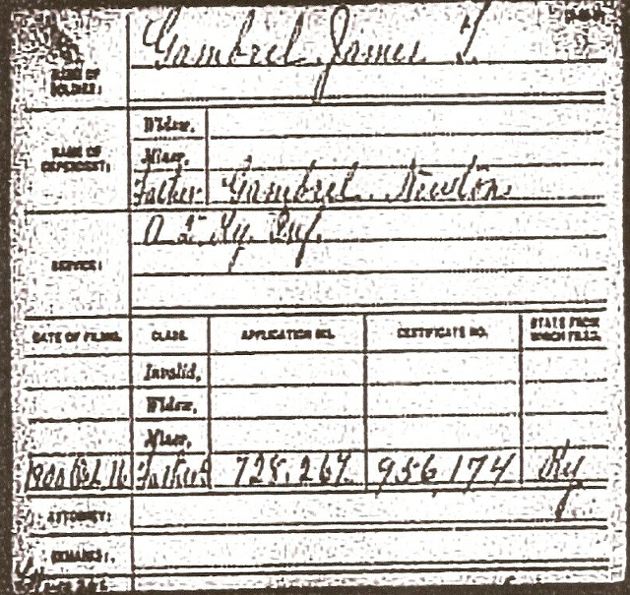 NAME OF SOLDIER: Gambrel James
NAME OF DEPENDENT:
Widow,
Minor,
Father Gambrel Newton
SERVICE: Ky. Inf.
DATE OF FILING. CLASS. APPLICATION NO. CERTIFICATE NO. STATE FROM WHICH FILED.
Invalid,
Widow,
Minor,
1900 Father 956,174 Ky
ATTORNEY:
REMARKS: